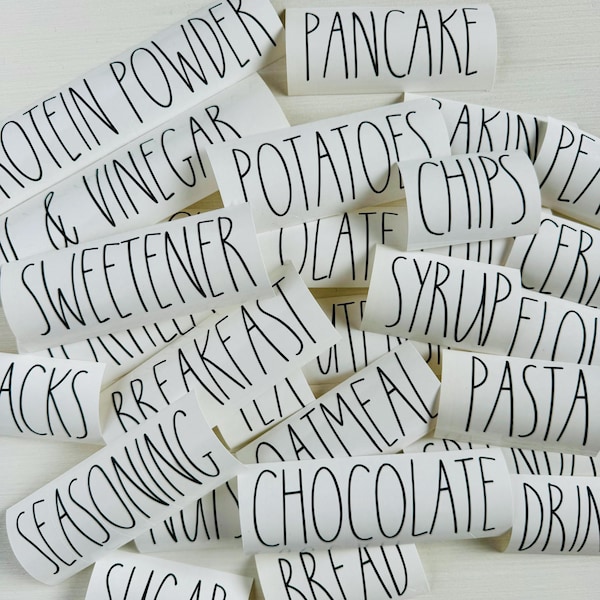 PROTEIN POWDER
PANCAKE
& VINEGAR
POTATOES
BAKIN
PE
CHIPS
SWEETENER
OLATE
CER
SYRUP
FLOU
BREAKFAST
ACKS
PASTA
OATMEAL
SEASONING
CHOCOLATE
NUTS
DRIN
SUGAR
BREAD